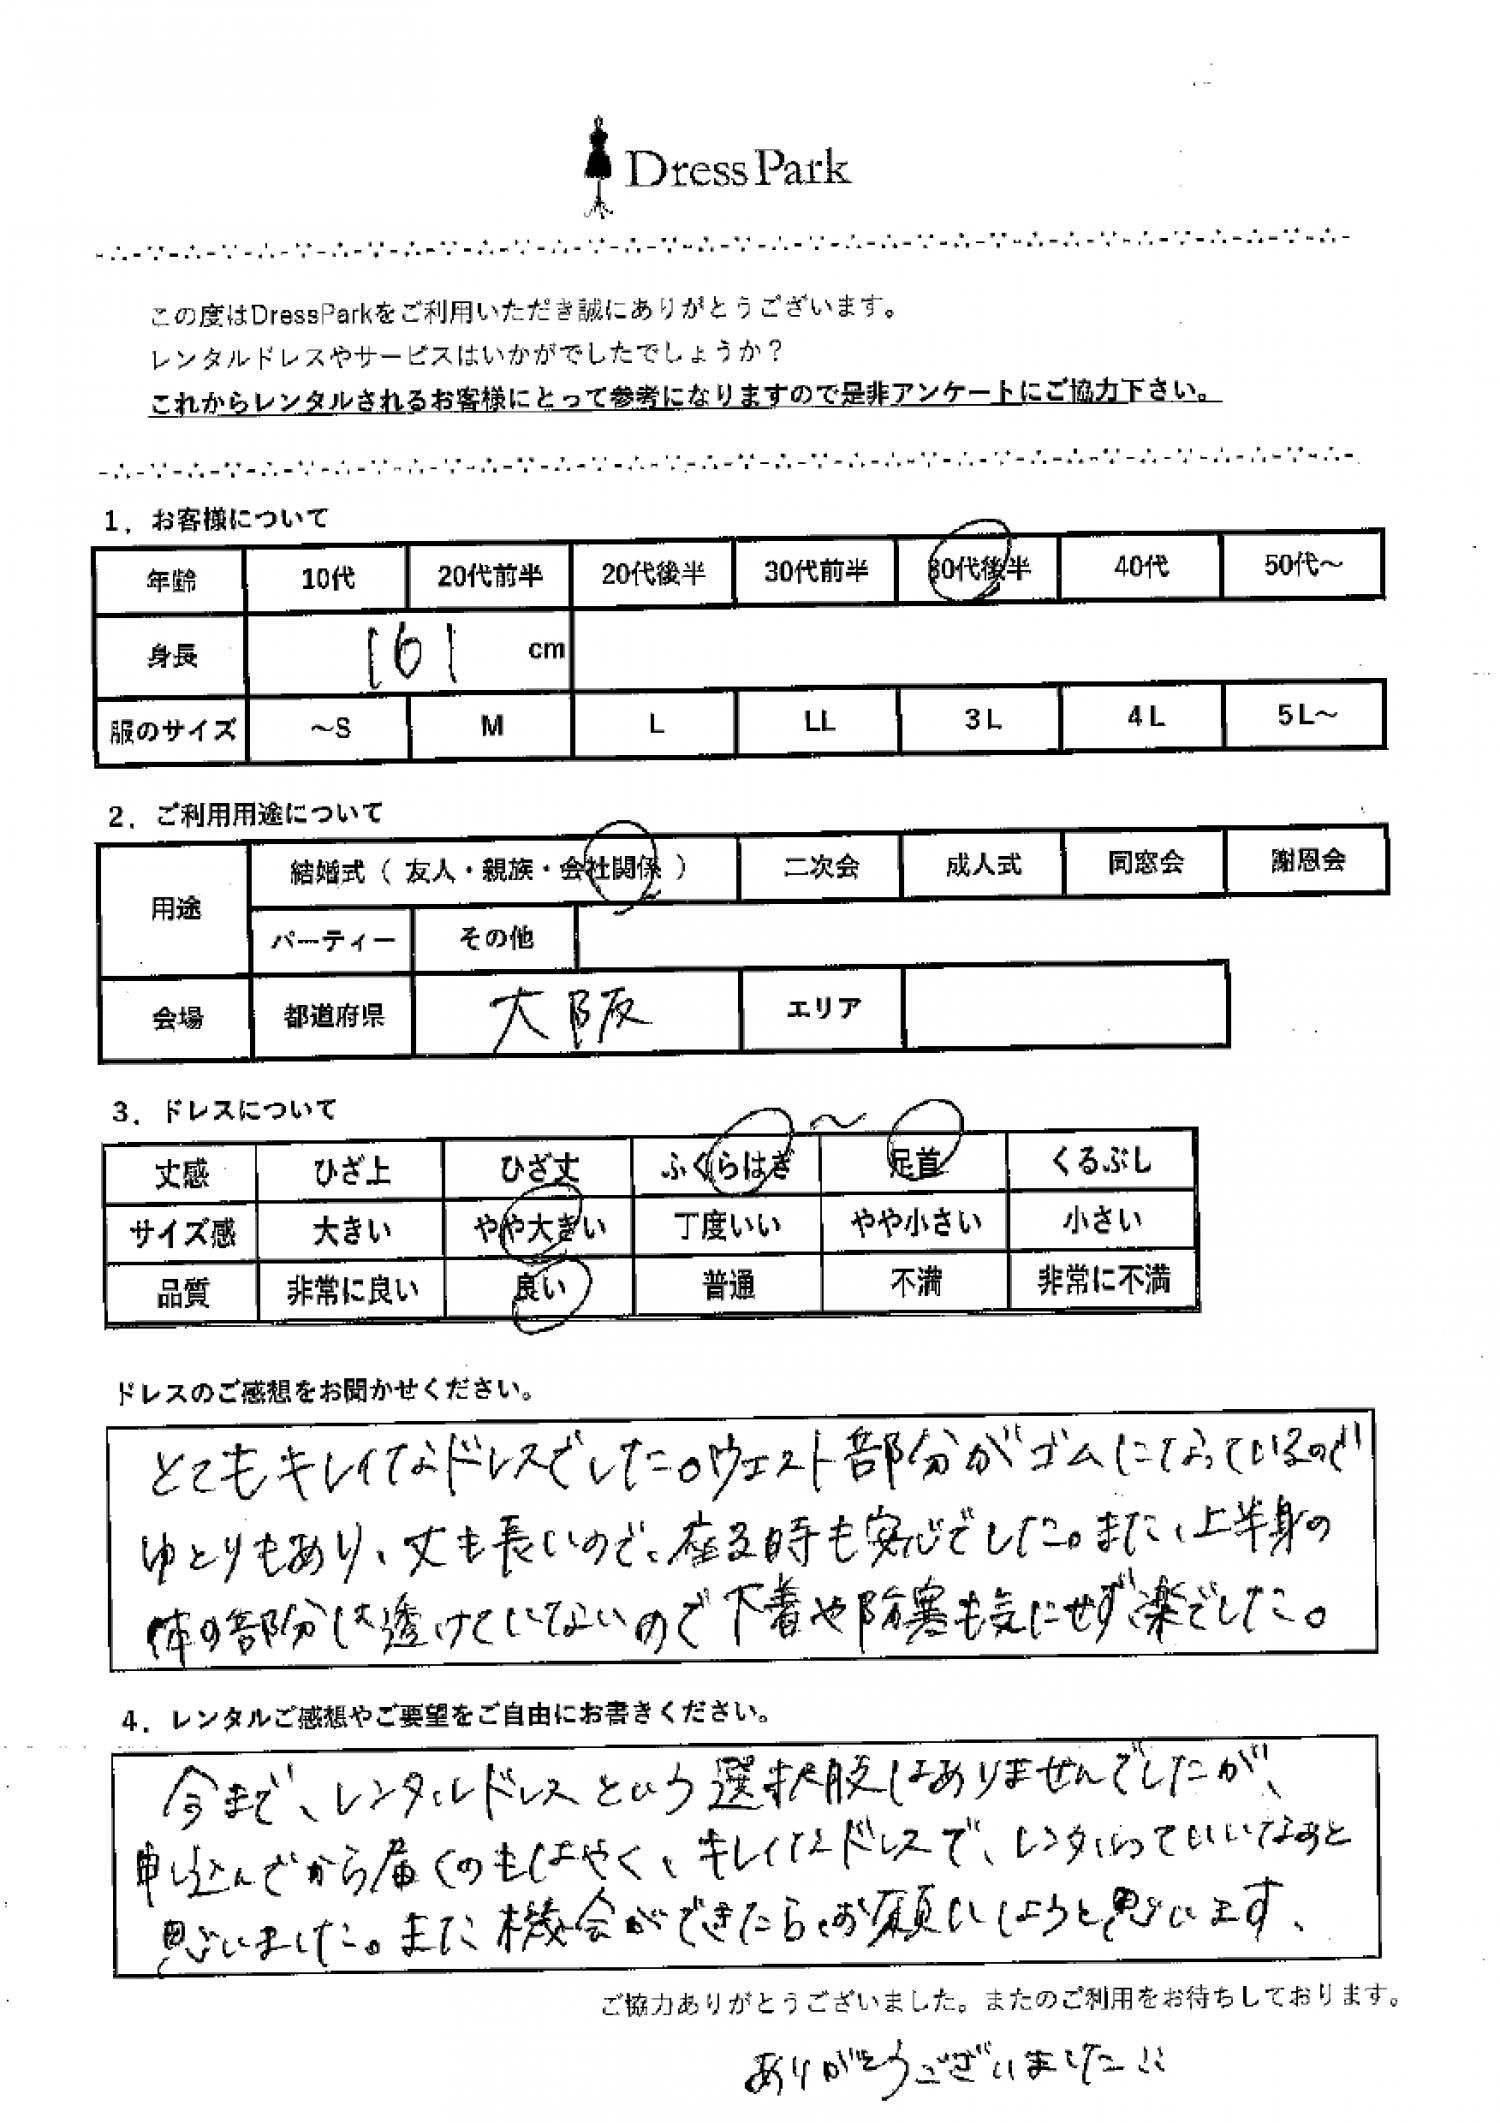 Dress Park
この度はDressParkをご利用いただき誠にありがとうございます。
レンタルドレスやサービスはいかがでしたでしょうか？
これからレンタルされるお客様にとって参考になりますので是非アンケートにご協力下さい。
1．お客様について
年齢 10代 20代前半 20代後半 30代前半 30代後半 40代 50代～
身長 161 cm
服のサイズ ～S M L LL 3L 4L 5L～
2．ご利用用途について
用途 結婚式（ 友人・親族・会社関係 ） 二次会 成人式 同窓会 謝恩会
パーティー その他
会場 都道府県 大阪 エリア
3．ドレスについて
～
丈感 ひざ上 ひざ丈 ふくらはぎ 足首 くるぶし
サイズ感 大きい やや大きい 丁度いい やや小さい 小さい
品質 非常に良い 良い 普通 不満 非常に不満
ドレスのご感想をお聞かせください。
とてもキレイなドレスでした。ウエスト部分がゴムになっているので
ゆとりもあり、丈も長いので、座る時も安心でした。また、上半身の
体の部分は透けていないので下着や防寒も気にせず楽でした。
4．レンタルご感想やご要望をご自由にお書きください。
今まで、レンタルドレスという選択肢はありませんでしたが、
申し込んでから届くのもはやく、キレイなドレスで、レンタルっていいなあと
思いました。また機会ができたらお願いしようと思います、
ご協力ありがとうございました。またのご利用をお待ちしております。
ありがとうございました!!